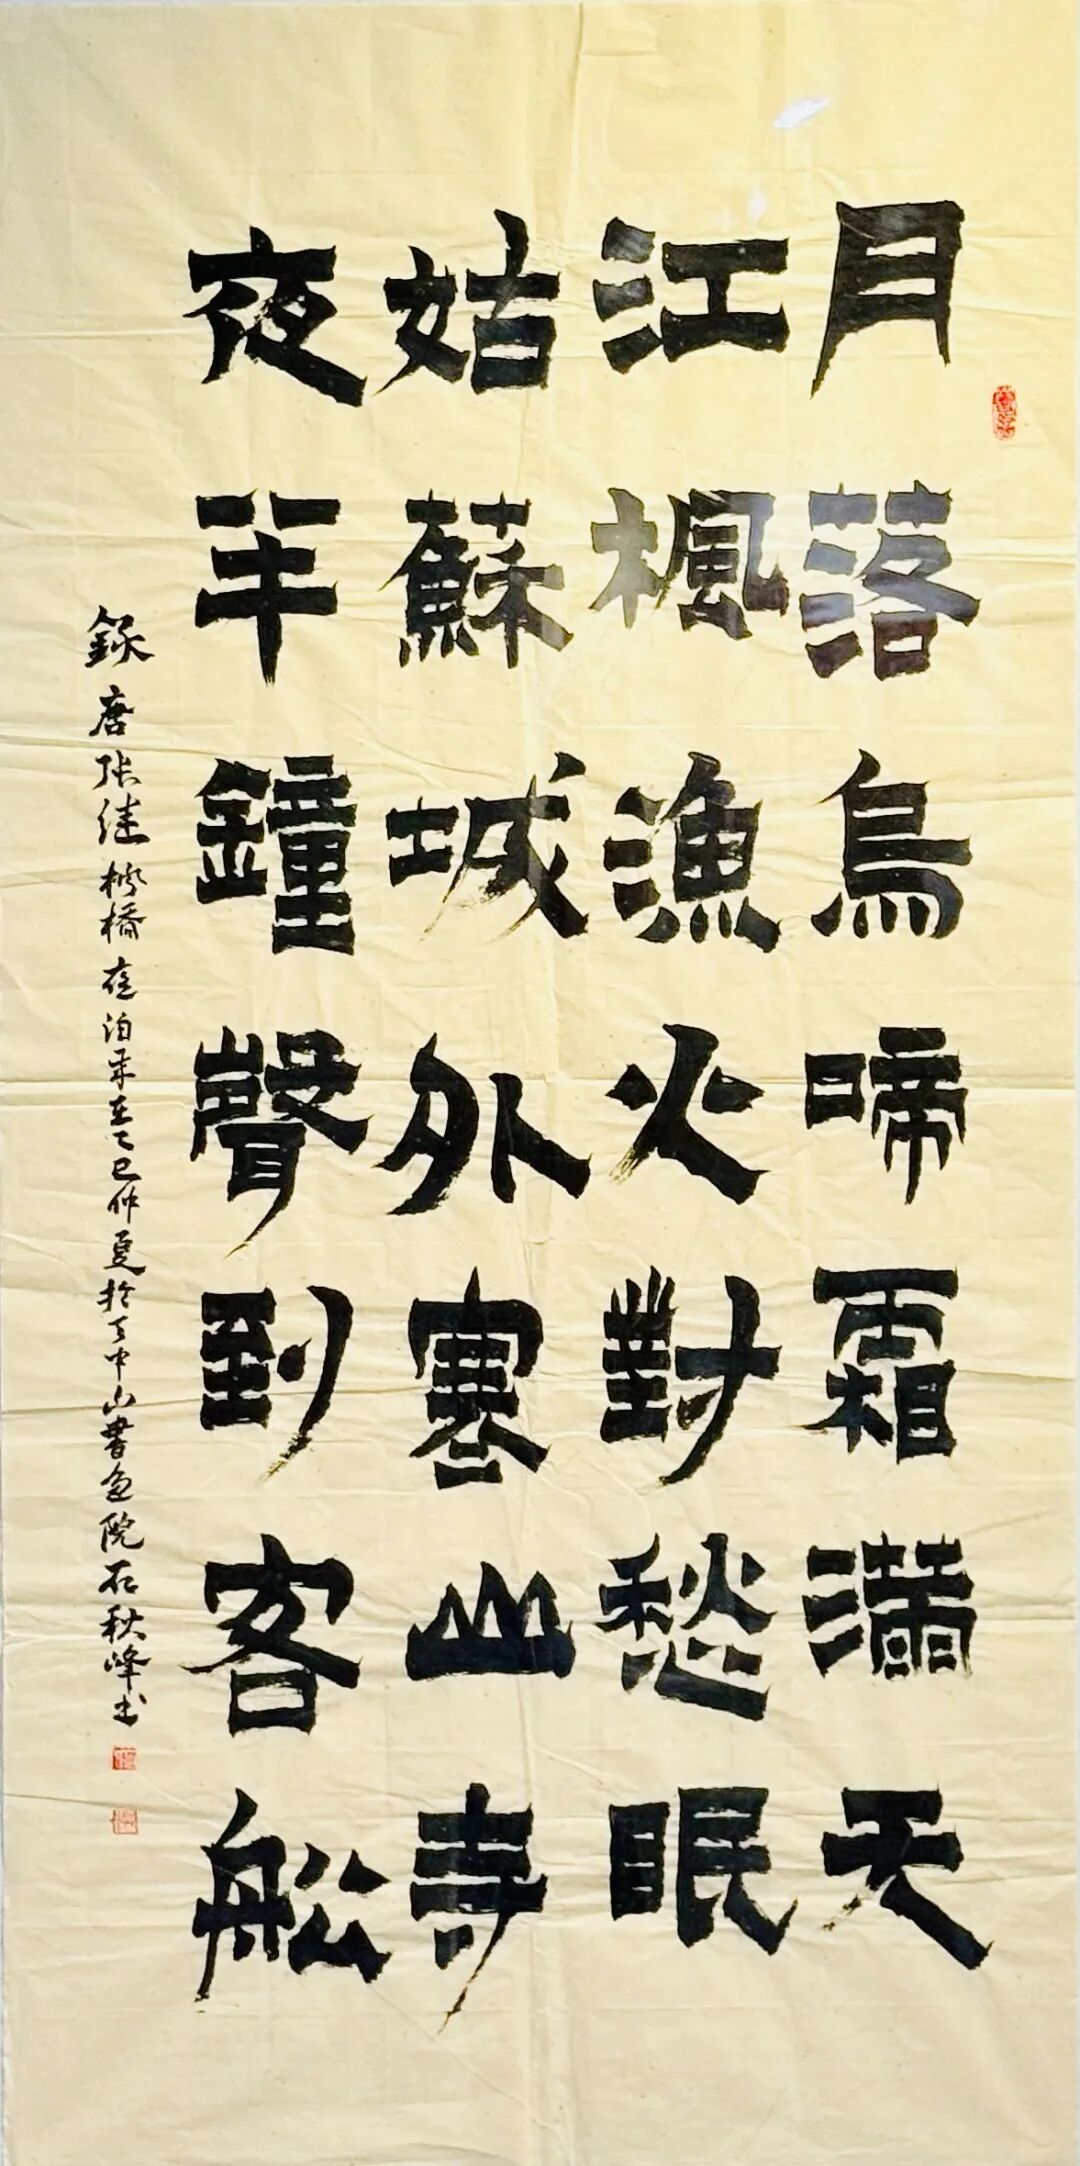 月落烏啼霜滿天
江楓漁火對愁眠
姑蘇城外寒山寺
夜半鐘聲到客船
錄唐张继楓橋夜泊 乙巳仲夏於 中山書画院石秋峰书